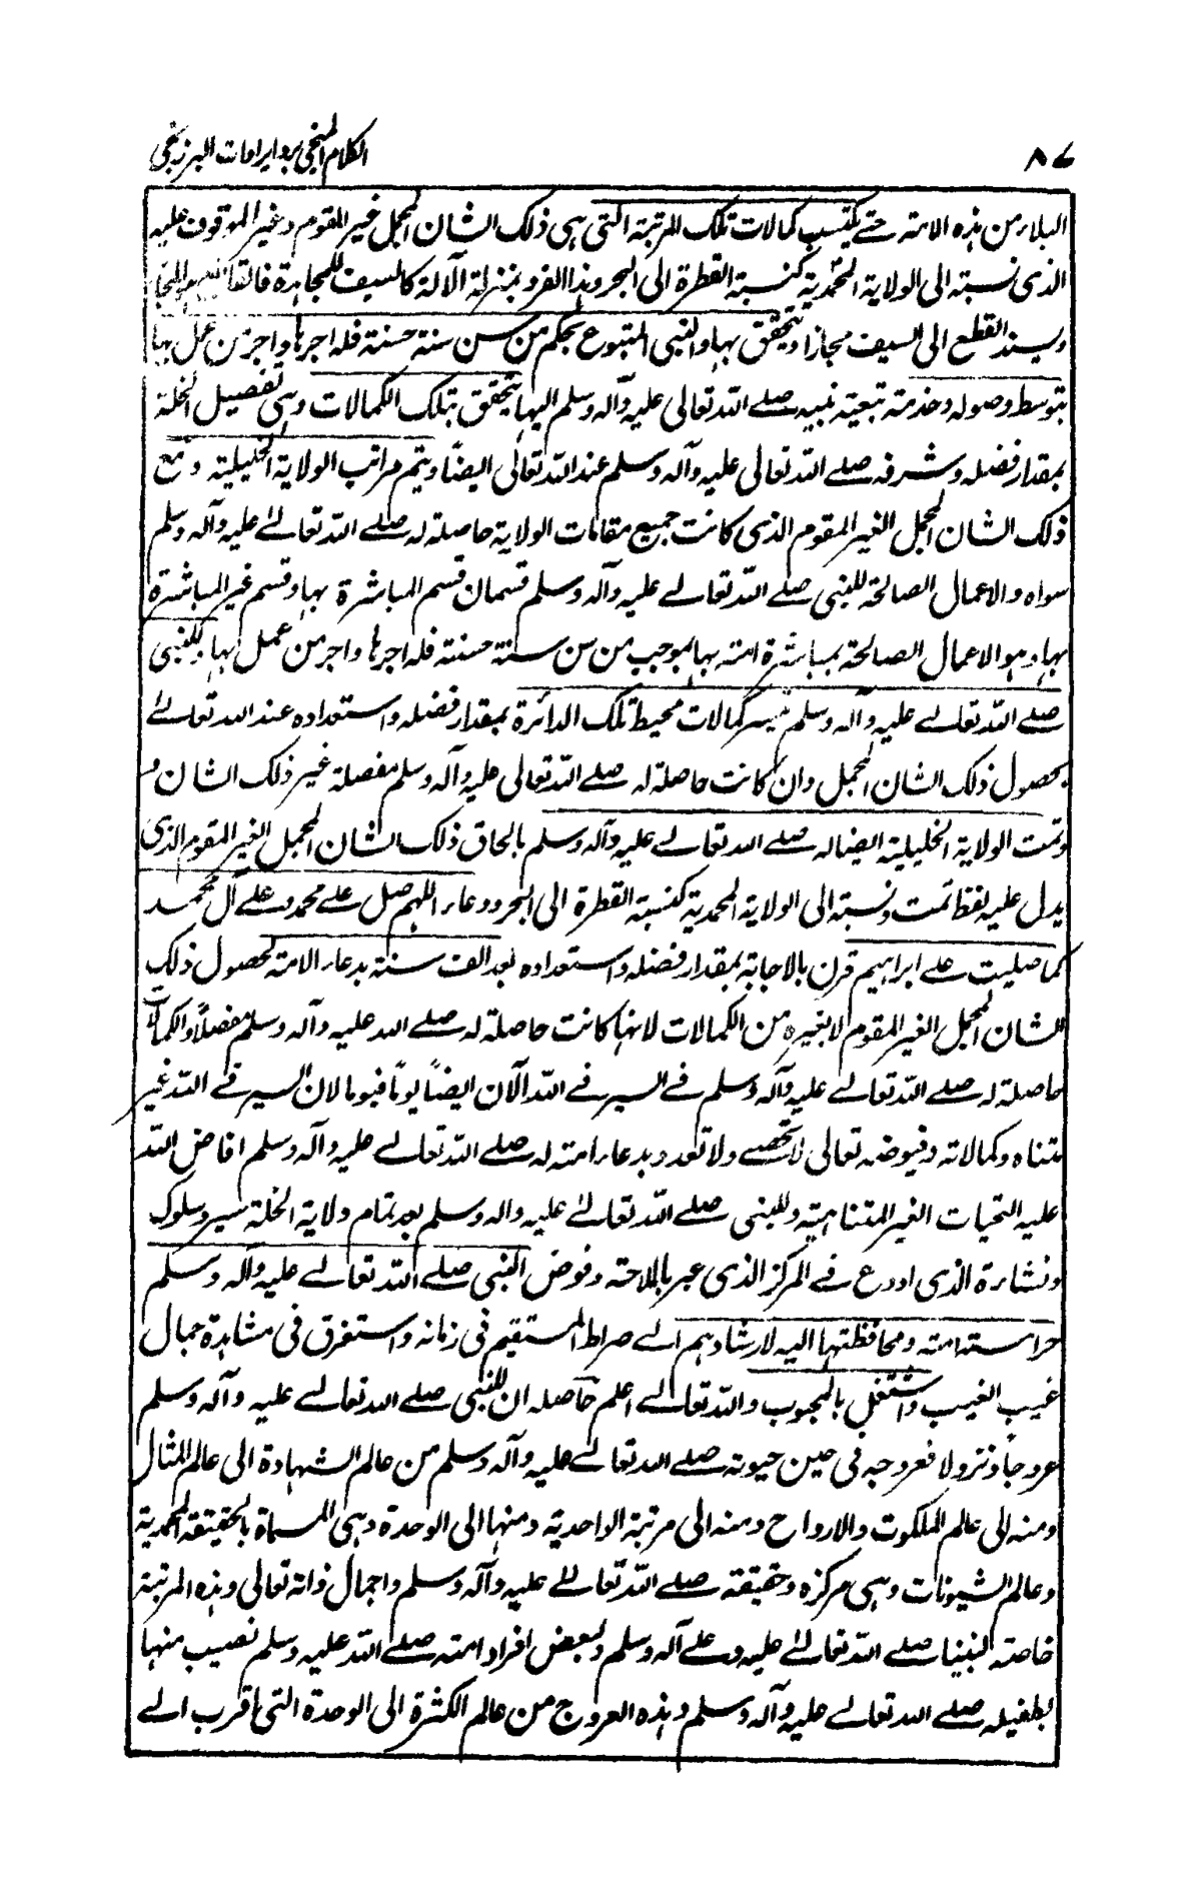 ٨٤ الكلام المنجي برد ايرادات البرزنجي
البلاء من هذه الامة حتے يكتسب كمالات تلك المرتبة التي هي ذلك الشان المجمل غير المقوم وغير الموقوف عليه
الذي نسبته الى الولاية المحمدية كنسبة القطرة الى البحر وهذا الفرد بمنزلة الآلة كالسيف للمجاهدة فالقاتل
ويسند القطع الى السيف مجازا ويتحقق بها والنبي المتبوع بحكم من سن سنة حسنة فله اجرها واجر من عمل بها
بتوسط وصوله وخدمته تبعية نبيه صلے الله تعالى عليه وآله وسلم اليها يتحقق بتلك الكمالات وهي تفصيل الخلة
بمقدار فضله وشرفه صلے الله تعالى عليه وآله وسلم عند الله تعالى ايضاً ويتم مراتب الولاية الخليلية ومع
ذلك الشان المجمل الغير المقوم الذي كانت جميع مقامات الولاية حاصلة له صلے الله تعالےٰ عليه وآله وسلم
سواه والاعمال الصالحة للنبي صلے الله تعالے عليه وآله وسلم قسمان قسم المباشرة بها وقسم غير المباشرة
بها وهو الاعمال الصالحة بمباشرة امته بها بموجب من سن سنة حسنة فله اجرها واجر من عمل بها وللنبي
صلے الله تعالے عليه وآله وسلم ميسر كمالات محيط تلك الدائرة بمقدار فضله واستعداده عند الله تعالےٰ
بحصول ذلك الشان المجمل وان كانت حاصلة له صلے الله تعالى عليه وآله وسلم مفصلة غير ذلك الشان و
وتمت الولاية الخليلية ايضا له صلے الله تعالے عليه وآله وسلم بالحاق ذلك الشان المجمل الغير المقوم الذي
يدل عليه لفظ اتمت ونسبته الى الولاية المحمدية كنسبة القطرة الى البحر ودعاء اللهم صل علے محمد وعلے آل محمد
كما صليت علے ابراهيم قرن بالاجابة بمقدار فضله واستعداده بعد الف سنة بدعاء الامة لحصول ذلك
الشان المجمل الغير المقوم لا بغيره من الكمالات لانها كانت حاصلة له صلے الله عليه وآله وسلم مفصلاً والكمالات
حاصلة له صلے الله تعالے عليه وآله وسلم في السير في الله الآن ايضاً يوماً فيوما لان السير في الله غير
متناه وكمالاته وفيوضه تعالى لا تحصے ولا تعد وبدعاء امته له صلے الله تعالے عليه وآله وسلم افاض الله
عليه التحيات الغير المتناهية وللنبي صلے الله تعالےٰ عليه واله وسلم بعد تمام ولاية الخلة سير وسلوك
ونشارة الذي اودع في المركز الذي عبر بالملاحة وفوض النبي صلے الله تعالے عليه وآله وسلم
حراسته امته ومحافظتها اليه لارشادهم الے صراط المستقيم في زمانه واستغرق في مشاهدة جمال
غيب الغيب واشتغل بالمحبوب والله تعالے اعلم حاصله ان للنبي صلے الله تعالے عليه وآله وسلم
عروجاً ونزولا فعروجه في حين حيوته صلے الله تعالےٰ عليه وآله وسلم من عالم الشهادة الى عالم المثال
ومنه الى عالم الملكوت والارواح ومنه الى مرتبة الواحدية ومنها الى الوحدة وهي المسماة بالحقيقة المحمدية
وعالم الشيونات وهي مركزه وحقيقته صلے الله تعالےٰ عليه وآله وسلم واجمال ذاته تعالى وهذه المرتبة
خاصة لنبينا صلے الله تعالےٰ عليه وعلے آله وسلم ولبعض افراد امته صلے الله عليه وسلم نصيب منها
بطفيله صلے الله تعالے عليه وآله وسلم وهذه العروج من عالم الكثرة الى الوحدة التي اقرب الے